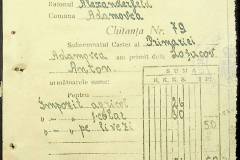 Raionul Alexanderfeld
Comuna Adamovca
Chitanța Nr. 79
Subsemnatul Casier al Primăriei
Adamovca am primit dela
Anton
următoarele sume:
SUMA
Pentru
Impozit agricol 26
" " școlar 30
" " pe livezi
50